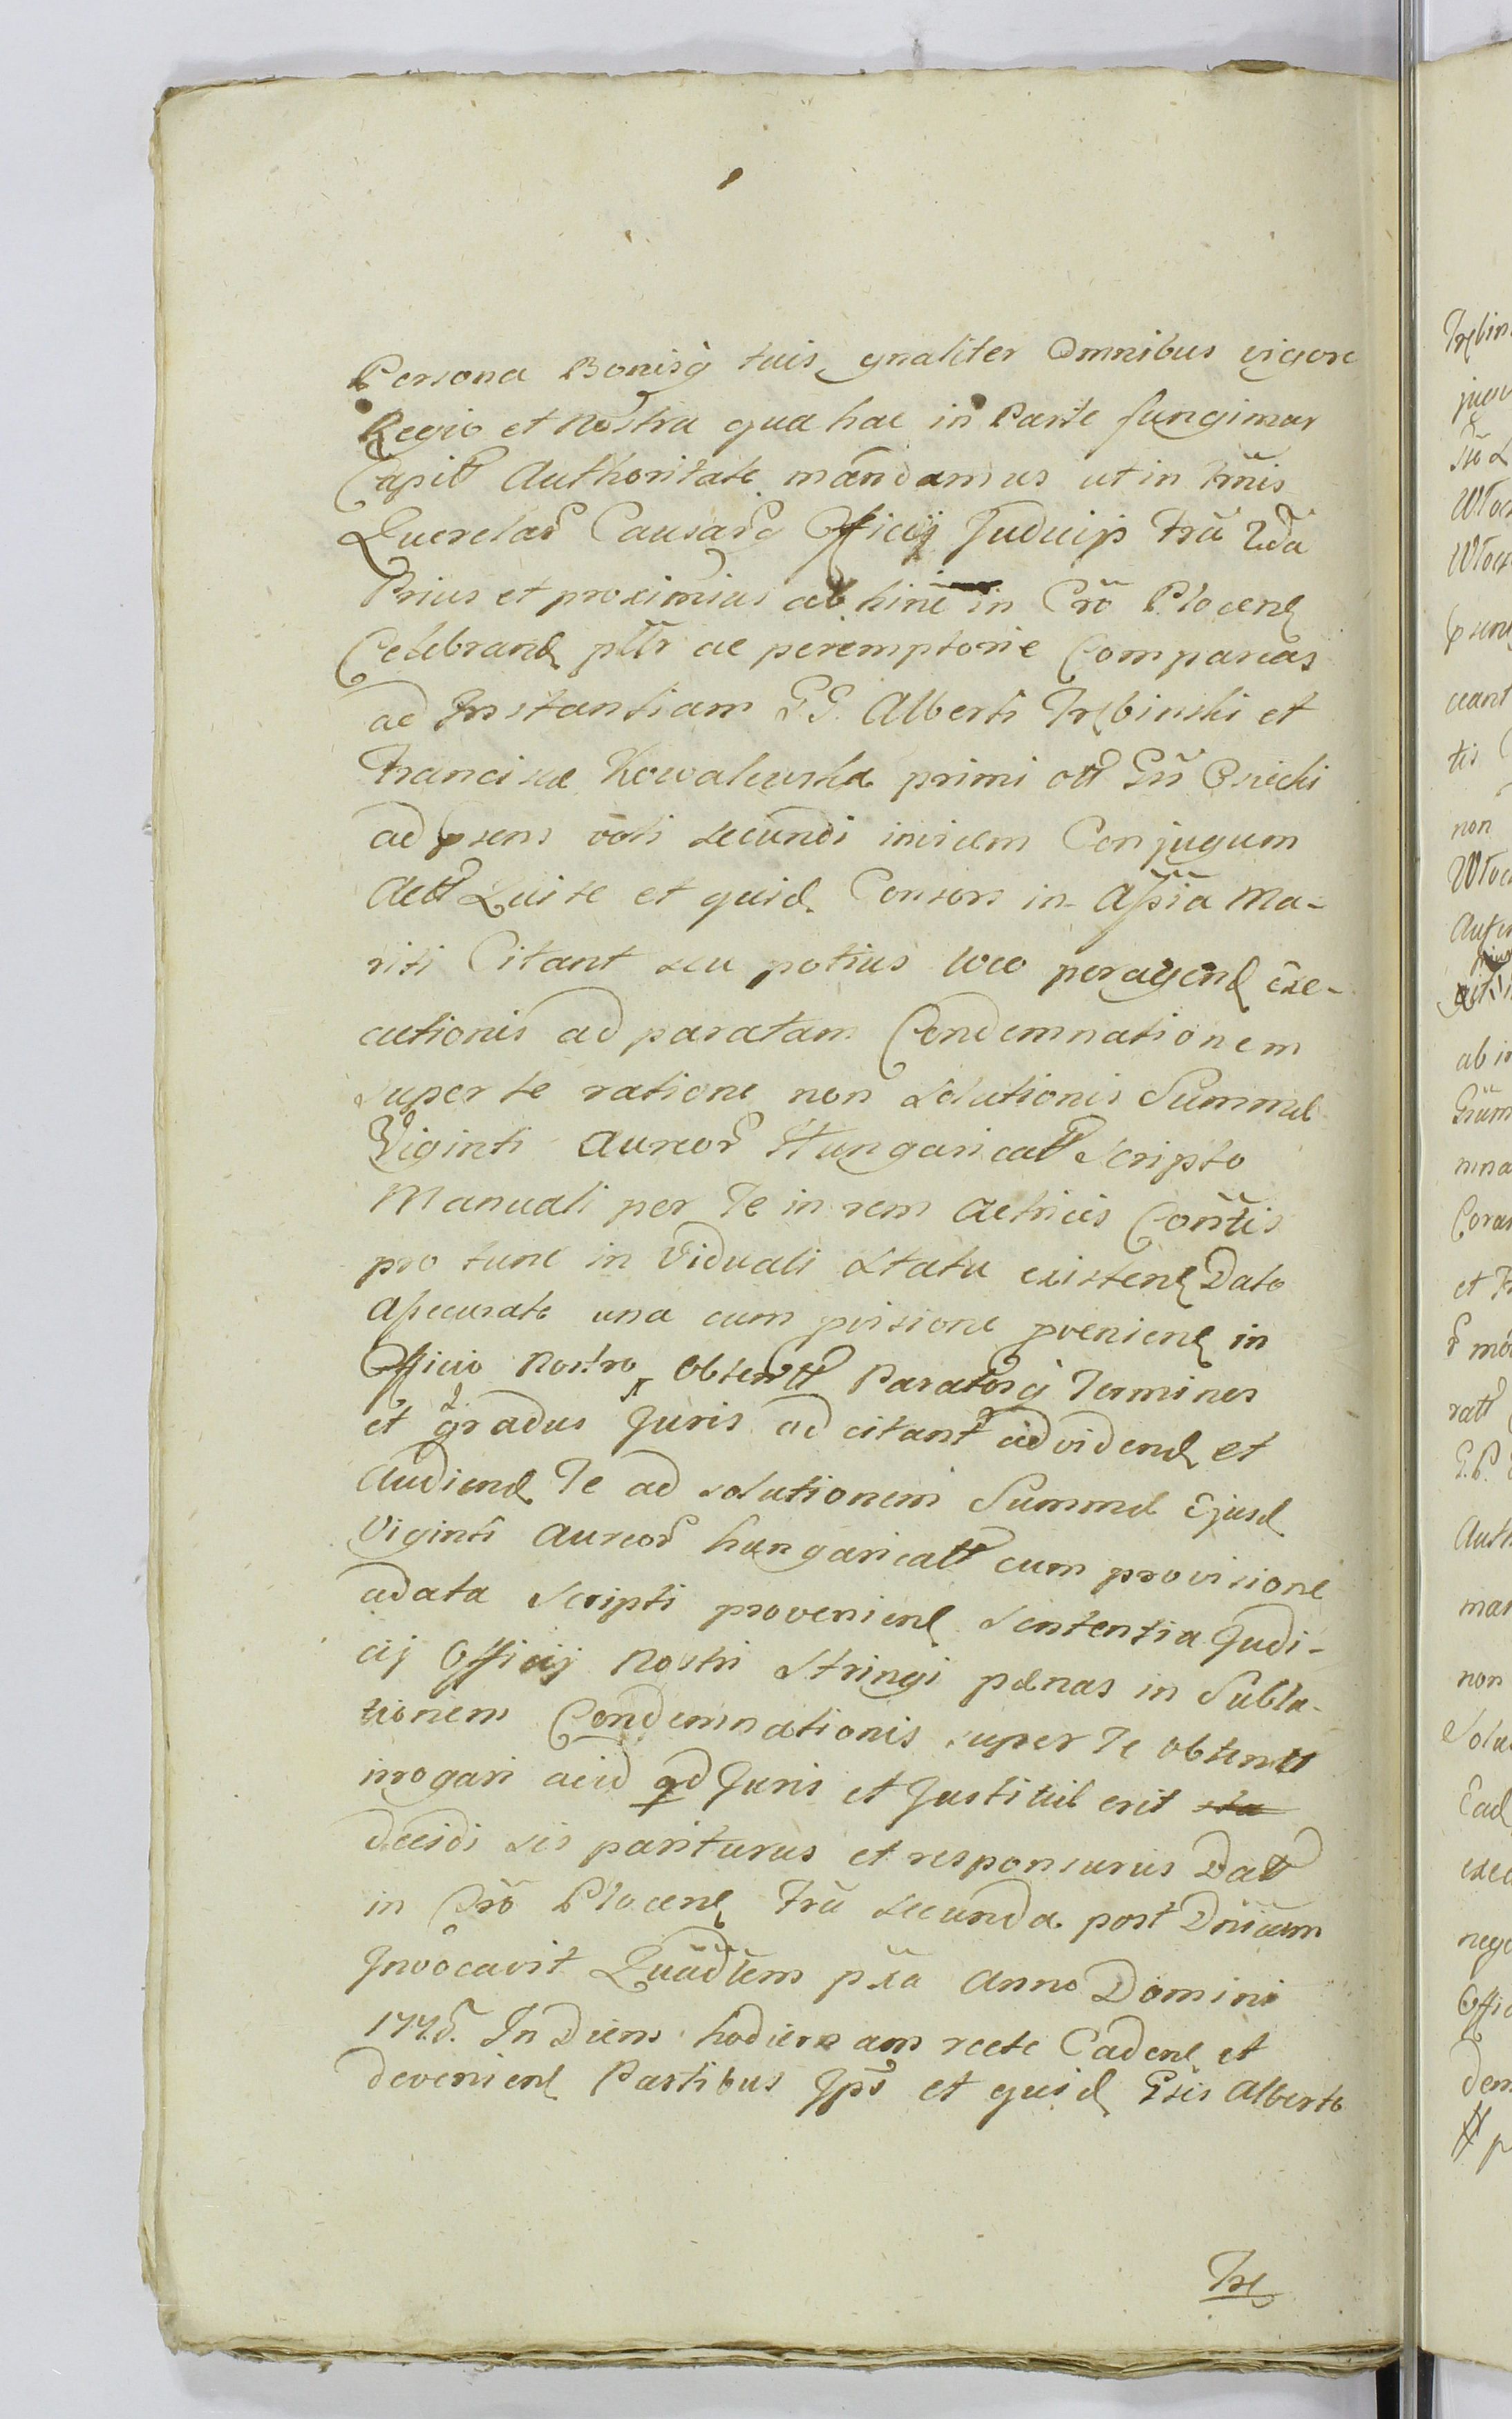 Persona Bonisq̃ tuis, gnaliter Omnibus vigore
Regio et Nostra qua hac in Parte fungimur
Capit Authoritate mandamus ut in Trnis
Querelar Causarq Officij Judicij Fria 2da
Prius et proximius ab hinc in Cro Plocen
Celebrand ptr ac peremptorie Compareas
ad Instantiam GG. Alberti Trębinski et
Franciscæ Kowalewska primi ott Gsi Osiecki
ad psens voti secundi invicem Conjugum
Act Quiste et quid. Consors in Assia Ma-
riti Citant seu potius loco peragend exe-
cutionis ad paratam Condemnationem
super te ratione non Solutionis Summæ
Viginti Aureor Hungarical Scripto
Manuali per Te in rem Actricis Contis
pro tunc in Viduali Statu existen Dato
Assecurate una cum pvisione pvenien in
Officio Nostro Obtent Paratosq̃ Terminos
et gradus Juris ad citant advidend et
Audiend Te ad solutionem Summæ Ejusd
Viginti Aureor hungarical cum provisione
adata Scripti provenien Sententia Judi-
cij Officij Nostri Stringi pænas in Subla-
tionem Condemnationis super Te obtent
irrogari acid qd Juris et Justitiæ erit
decidi sis pariturus et responsurus Dat
in Cro Plocen Fria secunda post Dnicam
Invocavit Quadlem pxa Anno Domini
1775. In Diem hodiernam recte Caden et
devenien Partibus Ipi et quid Gsis Alberto
Trę